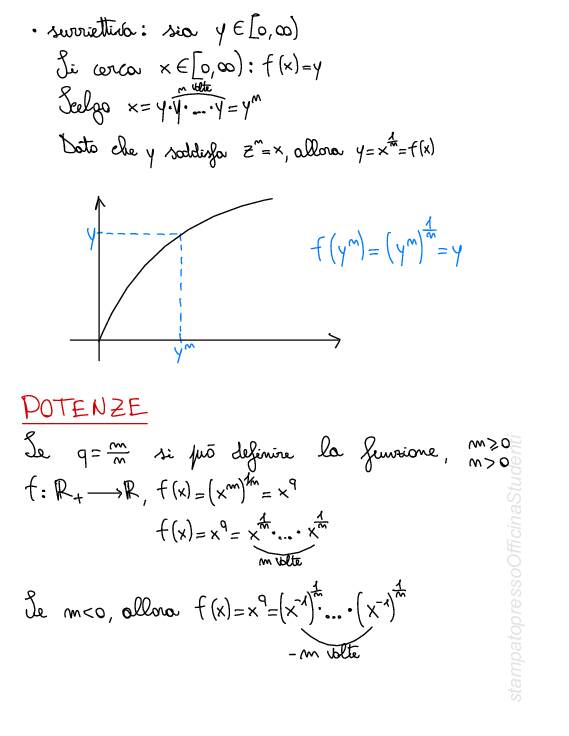 • suriettiva: sia y ∈ [0,∞)
Si cerca x ∈ [0,∞) : f(x) = y
n volte
Scelgo x = y·y·...·y = yⁿ
Dato che y soddisfa zⁿ = x, allora y = x^(1/n) = f(x)
y
f(yⁿ) = (yⁿ)^(1/n) = y
yⁿ
POTENZE
Se q = m/n si può definire la funzione, m ≥ 0
n > 0
f: ℝ₊ → ℝ, f(x) = (x^m)^(1/n) = x^q
f(x) = x^q = x^(1/n) · ... · x^(1/n)
m volte
Se m<0, allora f(x) = x^q = (x⁻¹)^(1/n) · ... · (x⁻¹)^(1/n)
-m volte
stampatopressoOfficinaStudenti